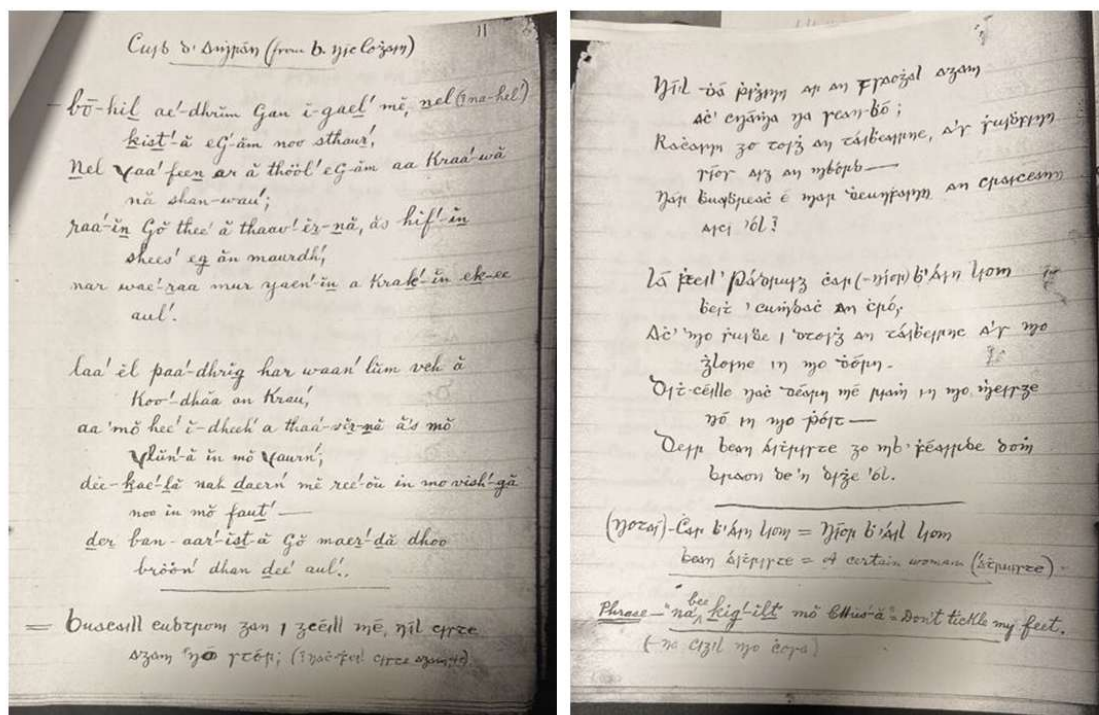 11
Cuid d'Aṁrán (from b. nic loġain)
bō-hil ae'-dhrŭm Gan ĭ-gael' mē, nel (ina-hel')
kist'-ă eG-ăm noo sthaur',
Nel yaa'feen ar ă thööl' eG-ăm aa Kraa'-wă
nă shan-wau';
raa'-in Gŏ thee' ă thaav'ĕr-nă, ăs hif'-in
shees' eg ăn maurdh',
nar wae'-raa mur yaen'-in a Krak'-in ek-ee
aul'.
laa' ēl paa'-dhrig har waan' lŭm veh ă
Koo'-dhăă an Krau',
aa' mŏ hee' ĭ-dheeh' a thaá-vĭr-nă ă's mŏ
ylŭn'-ă in mŏ yaurn',
dee-kae'-lă nah daern' mē ree'-ŏŭ in mo vish'-gă
noo in mŏ faut' —
der ban-aar'-ist-ă Gŏ maer'-dă dhoo
bröön' dhan dee' aul'.
= buaċaill eudtrom gan i gcéill mé, níl ciste
agam 'nó stór; (
Níl ḋá ṗiġinn ar an tsaoġal agam
aċ' cnáṁa na sean-ḃó;
Raċainn go toiġ an táiḃeairne, a's ṡuiḋfinn
síos aig an mbórd —
Nár ḃuaiḋreaċ é mar ḋeunfainn an craiceann
aici 'ól?
Lá ḟeil' Pádruig ċar (-níor) ḃ'áin liom
beiṫ 'cuṁdaċ an ċró,
Aċ' mo ṡuiḋe i dtoiġ an táiḃeirne a's mo
ġloine in mo ḋórn.
Díṫ-céille naċ déarn mé riaṁ in mo ṁeisge
nó in mo ṗóit —
Deir bean áiriṫe go mb' ḟéairrde doṁ
braon de 'n diġe 'ól.
(notaí) - Ċar ḃ'áin liom = Níor ḃ'áil liom
bean áiriṫe = A certain woman
Phrase — "na bee kig'-ilt mŏ Chus-ă" = Don't tickle my feet.
(- na cigil mo ċosa)